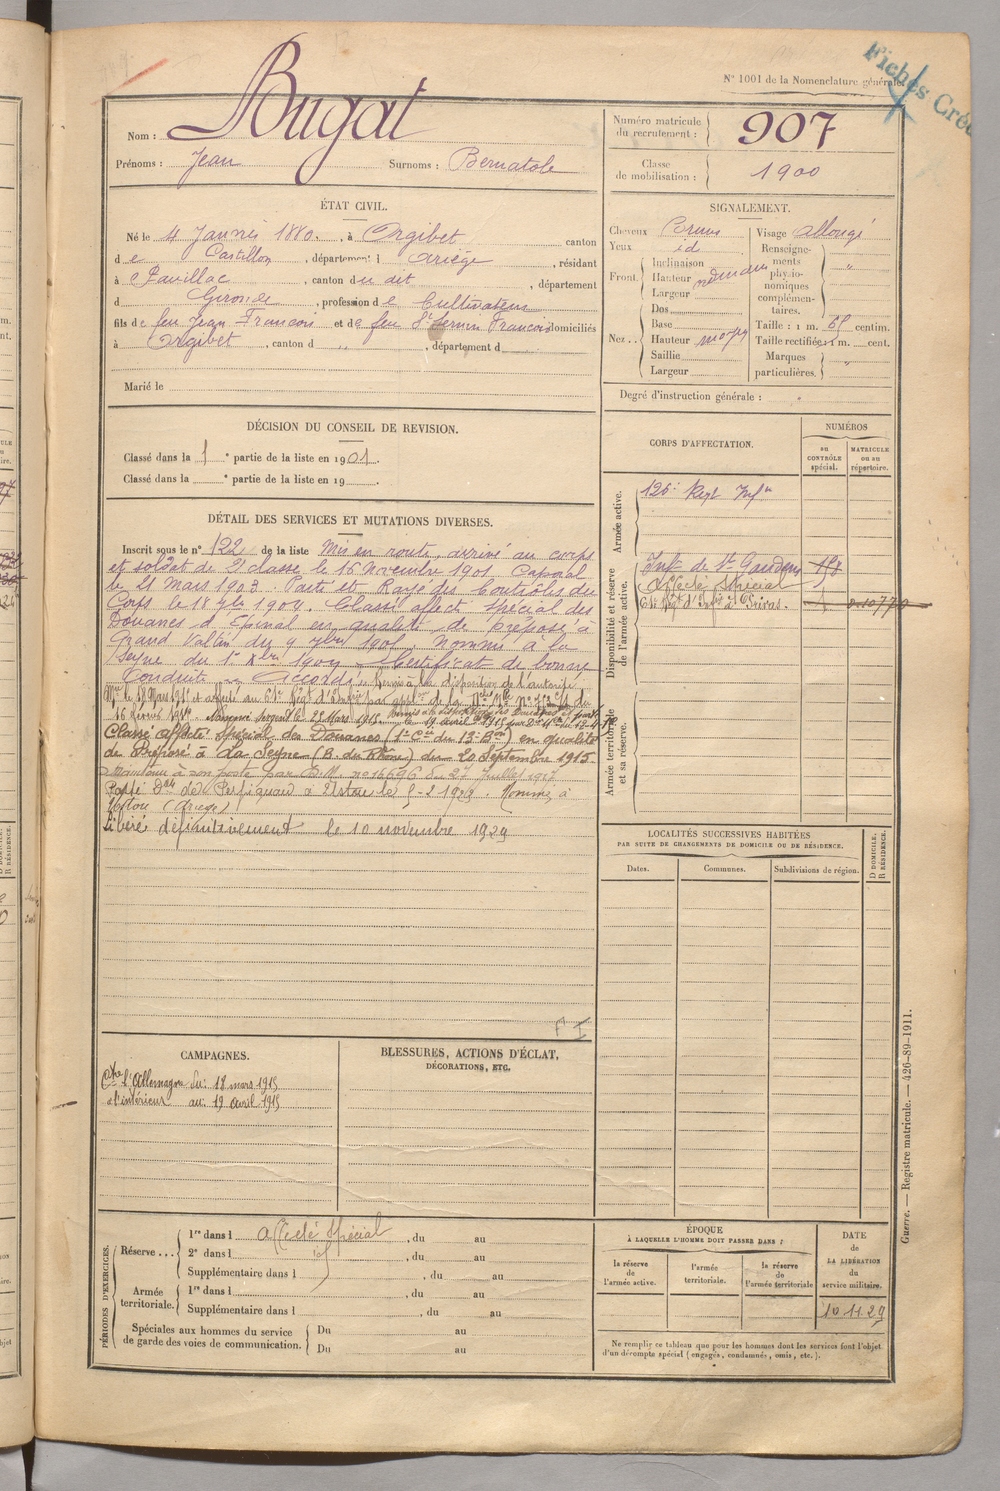 N° 1001 de la Nomenclature générale.
Fiches
Nom : Bugat
Prénoms : Jean Surnoms : Bernatole
Numéro matricule du recrutement : 907
Classe de mobilisation : 1900
ÉTAT CIVIL.
Né le 4 Janvier 1880, à Orgibet canton
de Castillon, département d Ariège, résidant
à Pauillac, canton du dit, département
d Gironde, profession de Cultivateur
fils de feu Jean François et de feu St Sernin Francois domiciliés
à Orgibet, canton d „, département d
Marié le
SIGNALEMENT.
Cheveux Bruns
Yeux id
Front. Inclinaison
Hauteur
Largeur
Nez .. Dos
Base
Hauteur moyen
Saillie
Largeur
Visage allongé
Renseignements physionomiques complémentaires. „
Taille : 1 m. 65 centim.
Taille rectifiée : m. cent.
Marques particulières. „
Degré d'instruction générale :
DÉCISION DU CONSEIL DE REVISION.
Classé dans la 1 e partie de la liste en 1901.
Classé dans la e partie de la liste en 19
CORPS D'AFFECTATION.
NUMÉROS
au CONTRÔLE spécial.
MATRICULE ou au répertoire.
Armée active.
126e Regt Infie
Disponibilité et réserve de l'armée active.
Inft de St Gaudens
Affecté Spécial
61e Regt d'Infie à Privas.
Armée territoriale et sa réserve.
DÉTAIL DES SERVICES ET MUTATIONS DIVERSES.
Inscrit sous le n° 122 de la liste Mis en route, arrivé au corps
et soldat de 2e classe le 16 Novembre 1901. Caporal
le 21 Mars 1903. Parti et Rayé des Contrôles du
Corps le 18 7bre 1904. Classé affecté spécial des
Douanes d'Epinal en qualité de préposé à
Grand Valtin du 9 9bre 1906. Nommé à la
Seyne du 1er Xbre 1909. Certificat de bonne
Conduite „ Accordé „ Remis à la disposition de l'autorité
Mre le 18 Mars 1915 et affecté au 61e Régt d'Infie
16 Février 1915. Nommé Sergent le 22 Mars 1915. Remis à la disposition des Douanes
le 19 avril 1915
Classé affecté Spécial des Douanes (1e Cie du 12e Bon) en qualité
de Préposé à La Seyne (B. du Rhône) du 20 Septembre 1915.
Maintenu à son poste par D.M. no 16696 du 27 Juillet 1917
Passé Don de Perpignan à Ustou le 5-2 1923. Nommé à
Ustou (Ariège)
Libéré définitivement le 10 novembre 1929
LOCALITÉS SUCCESSIVES HABITÉES
PAR SUITE DE CHANGEMENTS DE DOMICILE OU DE RÉSIDENCE.
Dates. Communes. Subdivisions de région. D DOMICILE, R RÉSIDENCE.
CAMPAGNES.
Ctre l'Allemagne du : 18 mars 1915
à l'intérieur au : 19 avril 1915
BLESSURES, ACTIONS D'ÉCLAT,
DÉCORATIONS, ETC.
Guerre. — Registre matricule. — 426-89-1911.
PÉRIODES D'EXERCICES.
Réserve ... 1re dans l affecté Spécial, du au
2e dans l, du au
Supplémentaire dans l, du au
Armée territoriale. 1re dans l, du au
Supplémentaire dans l, du au
Spéciales aux hommes du service de garde des voies de communication. Du au
Du au
ÉPOQUE
À LAQUELLE L'HOMME DOIT PASSER DANS :
la réserve de l'armée active.
l'armée territoriale.
la réserve de l'armée territoriale
DATE de LA LIBÉRATION du service militaire.
10.11.29
Ne remplir ce tableau que pour les hommes dont les services font l'objet
d'un décompte spécial (engagés, condamnés, omis, etc.).